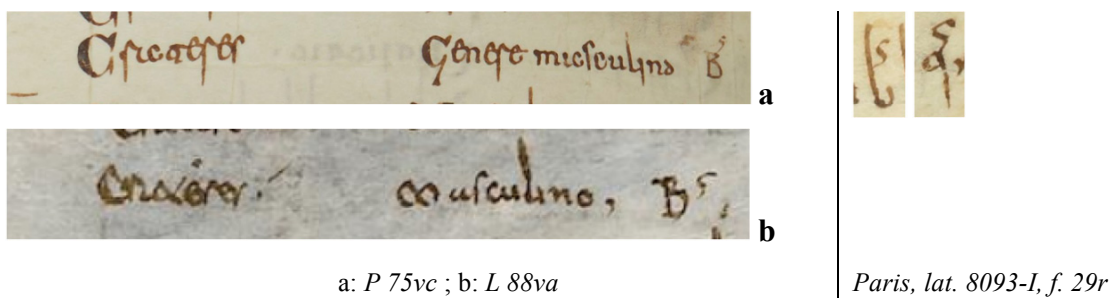 Crateres Genere masculino Bˢ a
Crateres. Masculino, Bˢ, b
a: P 75vc ; b: L 88va
Paris, lat. 8093-I, f. 29r